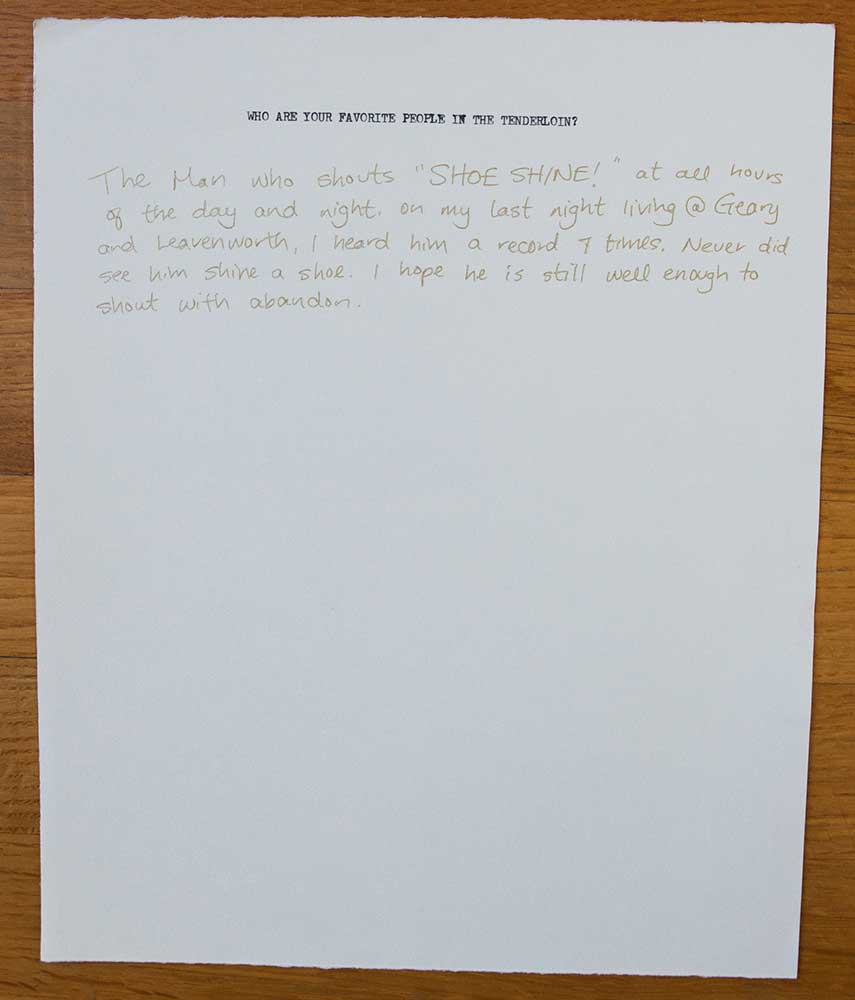 WHO ARE YOUR FAVORITE PEOPLE IN THE TENDERLOIN?
The Man who shouts "SHOE SHINE!" at all hours
of the day and night. on my last night living @ Geary
and Leavenworth, I heard him a record 7 times. Never did
see him shine a shoe. I hope he is still well enough to
shout with abandon.